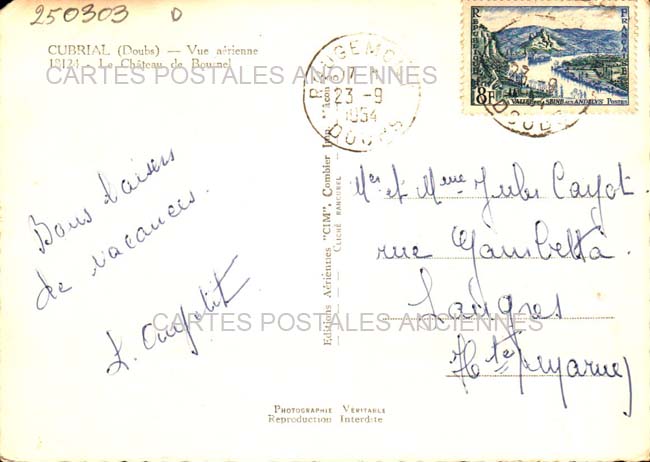 250303 D
CUBRIAL (Doubs) — Vue aérienne
13124 - Le Château de Bournel
CARTES POSTALES ANCIENNES
ROUGEMONT
23-9
1954
DOUBS
RÉPUBLIQUE FRANÇAISE
8F
LA VALLÉE DE LA SEINE AUX ANDELYS POSTES
DOUBS
Bons baisers
de vacances.
Editions Aériennes "CIM", Combier Imp. Macon
CLICHÉ RANCUREL
Mr et Mme Jules Cayot
rue Gambetta
Langres
Hte Marne
CARTES POSTALES ANCIENNES
PHOTOGRAPHIE VÉRITABLE
Reproduction Interdite